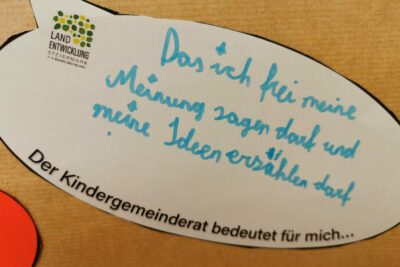 LAND
ENTWICKLUNG
STEIERMARK
Das ich frei meine
Meinung sagen darf und
meine Ideen ersählen darf
Der Kindergemeinderat bedeutet für mich...